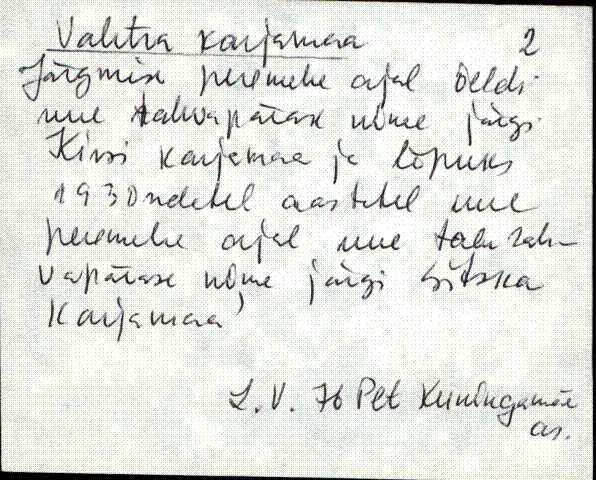 Valitra karjamaa 2
Järgmise peremehe ajal öeldi
uue rahvapärase nime järgi
Kirsi karjamaa ja lõpuks
1930ndatel aastatel uue
peremehe ajal uue talu rah-
vapärase nime järgi Sitska
karjamaa'
L. V. 76 Plt Kuningamäe
as.